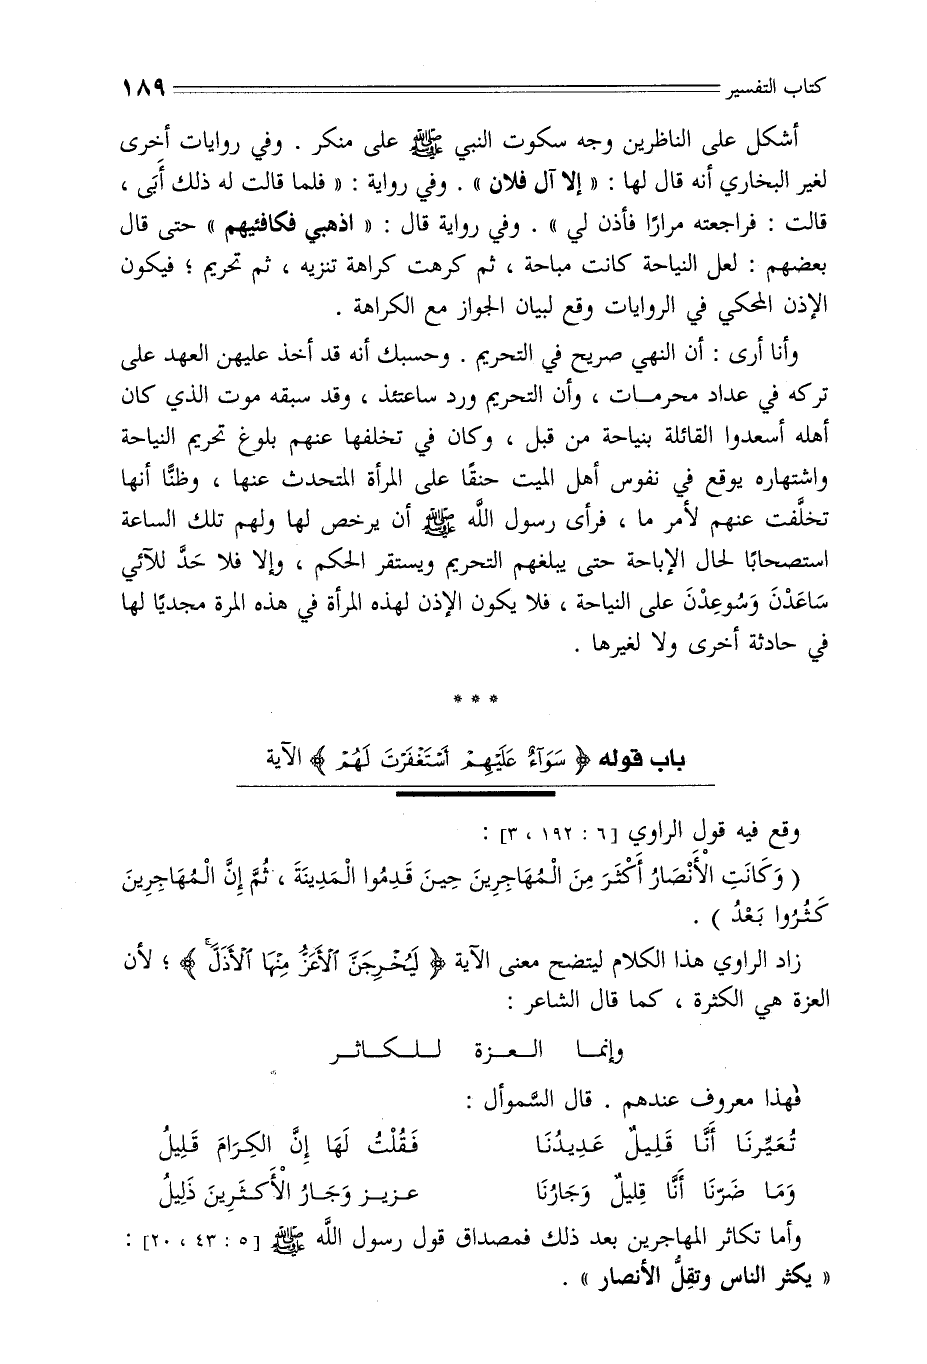 كتاب التفسير ١٨٩
أشكل على الناظرين وجه سكوت النبي ﷺ على منكر . وفي روايات أخرى
لغير البخاري أنه قال لها : « إلا آل فلان » . وفي رواية : « فلما قالت له ذلك أَبَى ،
قالت : فراجعته مرارًا فأذن لي » . وفي رواية قال : « اذهبي فكافئيهم » حتى قال
بعضهم : لعل النياحة كانت مباحة ، ثم كرهت كراهة تنزيه ، ثم تحريم ؛ فيكون
الإذن المحكي في الروايات وقع لبيان الجواز مع الكراهة .
وأنا أرى : أن النهي صريح في التحريم . وحسبك أنه قد أخذ عليهن العهد على
تركه في عداد محرمـات ، وأن التحريم ورد ساعتئذ ، وقد سبقه موت الذي كان
أهله أسعدوا القائلة بنياحة من قبل ، وكان في تخلفها عنهم بلوغ تحريم النياحة
واشتهاره يوقع في نفوس أهل الميت حنقًا على المرأة المتحدث عنها ، وظنًّا أنها
تخلَّفت عنهم لأمر ما ، فرأى رسول اللَّه ﷺ أن يرخص لها ولهم تلك الساعة
استصحابًا لحال الإباحة حتى يبلغهم التحريم ويستقر الحكم ، وإلا فلا حَدَّ للآئي
سَاعَدْنَ وَسُوعِدْنَ على النياحة ، فلا يكون الإذن لهذه المرأة في هذه المرة مجديًا لها
في حادثة أخرى ولا لغيرها .
* * *
باب قوله ﴿ سَوَآءٌ عَلَيْهِمْ أَسْتَغْفَرْتَ لَهُمْ ﴾ الآية
وقع فيه قول الراوي [٦ : ١٩٢ ، ٣] :
( وَكَانَتِ الْأَنْصَارُ أَكْثَرَ مِنَ الْمُهَاجِرِينَ حِينَ قَدِمُوا الْمَدِينَةَ ، ثُمَّ إِنَّ الْمُهَاجِرِينَ
كَثُرُوا بَعْدُ ) .
زاد الراوي هذا الكلام ليتضح معنى الآية ﴿ لَيُخْرِجَنَّ ٱلْأَعَزُّ مِنْهَا ٱلْأَذَلَّ ۚ ﴾ ؛ لأن
العزة هي الكثرة ، كما قال الشاعر :
وإنما الـعـزة لـلـكـاثـر
فهذا معروف عندهم . قال السَّموأل :
تُعَيِّرنَا أَنَّا قَلِيلٌ عَدِيدُنَا فَقُلْتُ لَهَا إِنَّ الكِرَامَ قَلِيلُ
وَمَا ضَرّنَا أَنَّا قلِيلٌ وَجَارُنَا عزيز وَجَارُ الْأَكثَرِينَ ذَلِيلُ
وأما تكاثر المهاجرين بعد ذلك فمصداق قول رسول اللَّه ﷺ [٥ : ٤٣ ، ٢٠] :
« يكثر الناس وتقِلُّ الأنصار » .